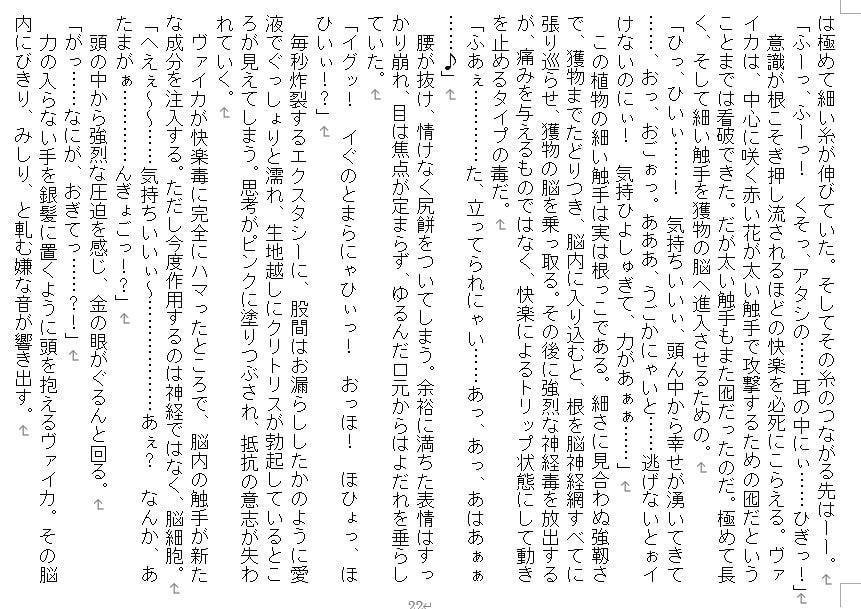 は極めて細い糸が伸びていた。そしてその糸のつながる先は――。
「ふーっ、ふーっ！　くそっ、アタシの……耳の中にぃ……ひぎっ！」
　意識が根こそぎ押し流されるほどの快楽を必死にこらえる。ヴァ
イカは、中心に咲く赤い花が太い触手で攻撃するための囮だという
ことまでは看破できた。だが太い触手もまた囮だったのだ。極めて長
く、そして細い触手を獲物の脳へ進入させるための。
「ひっ、ひいぃ……！　気持ちいいぃ、頭ん中から幸せが湧いてきて
……、おっ、おごぉっ。あああ、うごかにゃいと……逃げないとぉイ
けないのにぃ！　気持ひよしゅぎて、力があぁぁ……」
　この植物の細い触手は実は根っこである。細さに見合わぬ強靱さ
で、獲物までたどりつき、脳内に入り込むと、根を脳神経網すべてに
張り巡らせ、獲物の脳を乗っ取る。その後に強烈な神経毒を放出する
が、痛みを与えるものではなく、快楽によるトリップ状態にして動き
を止めるタイプの毒だ。
「ふあぇ…………た、立ってられにゃい……あっ、あっ、あはあぁぁ
……♪」
　腰が抜け、情けなく尻餅をついてしまう。余裕に満ちた表情はすっ
かり崩れ、目は焦点が定まらず、ゆるんだ口元からはよだれを垂らし
ていた。
「イグッ！　イぐのとまらにゃひぃっ！　おっほ！　ほひょっ、ほ
ひいぃ！？」
　毎秒炸裂するエクスタシーに、股間はお漏らししたかのように愛
液でぐっしょりと濡れ、生地越しにクリトリスが勃起しているとこ
ろが見えてしまう。思考がピンクに塗りつぶされ、抵抗の意志が失わ
れていく。
　ヴァイカが快楽毒に完全にハマったところで、脳内の触手が新た
な成分を注入する。ただし今度作用するのは神経ではなく、脳細胞。
「へえぇ～～……気持ちいいぃ～……………あぇ？　なんか、あ
たまがぁ…………んぎょごっ！？」
　頭の中から強烈な圧迫を感じ、金の眼がぐるんと回る。
「がっ……なにが、おぎてっ……？！」
　力の入らない手を銀髪に置くように頭を抱えるヴァイカ。その脳
内にびきり、みしり、と軋む嫌な音が響き出す。
22